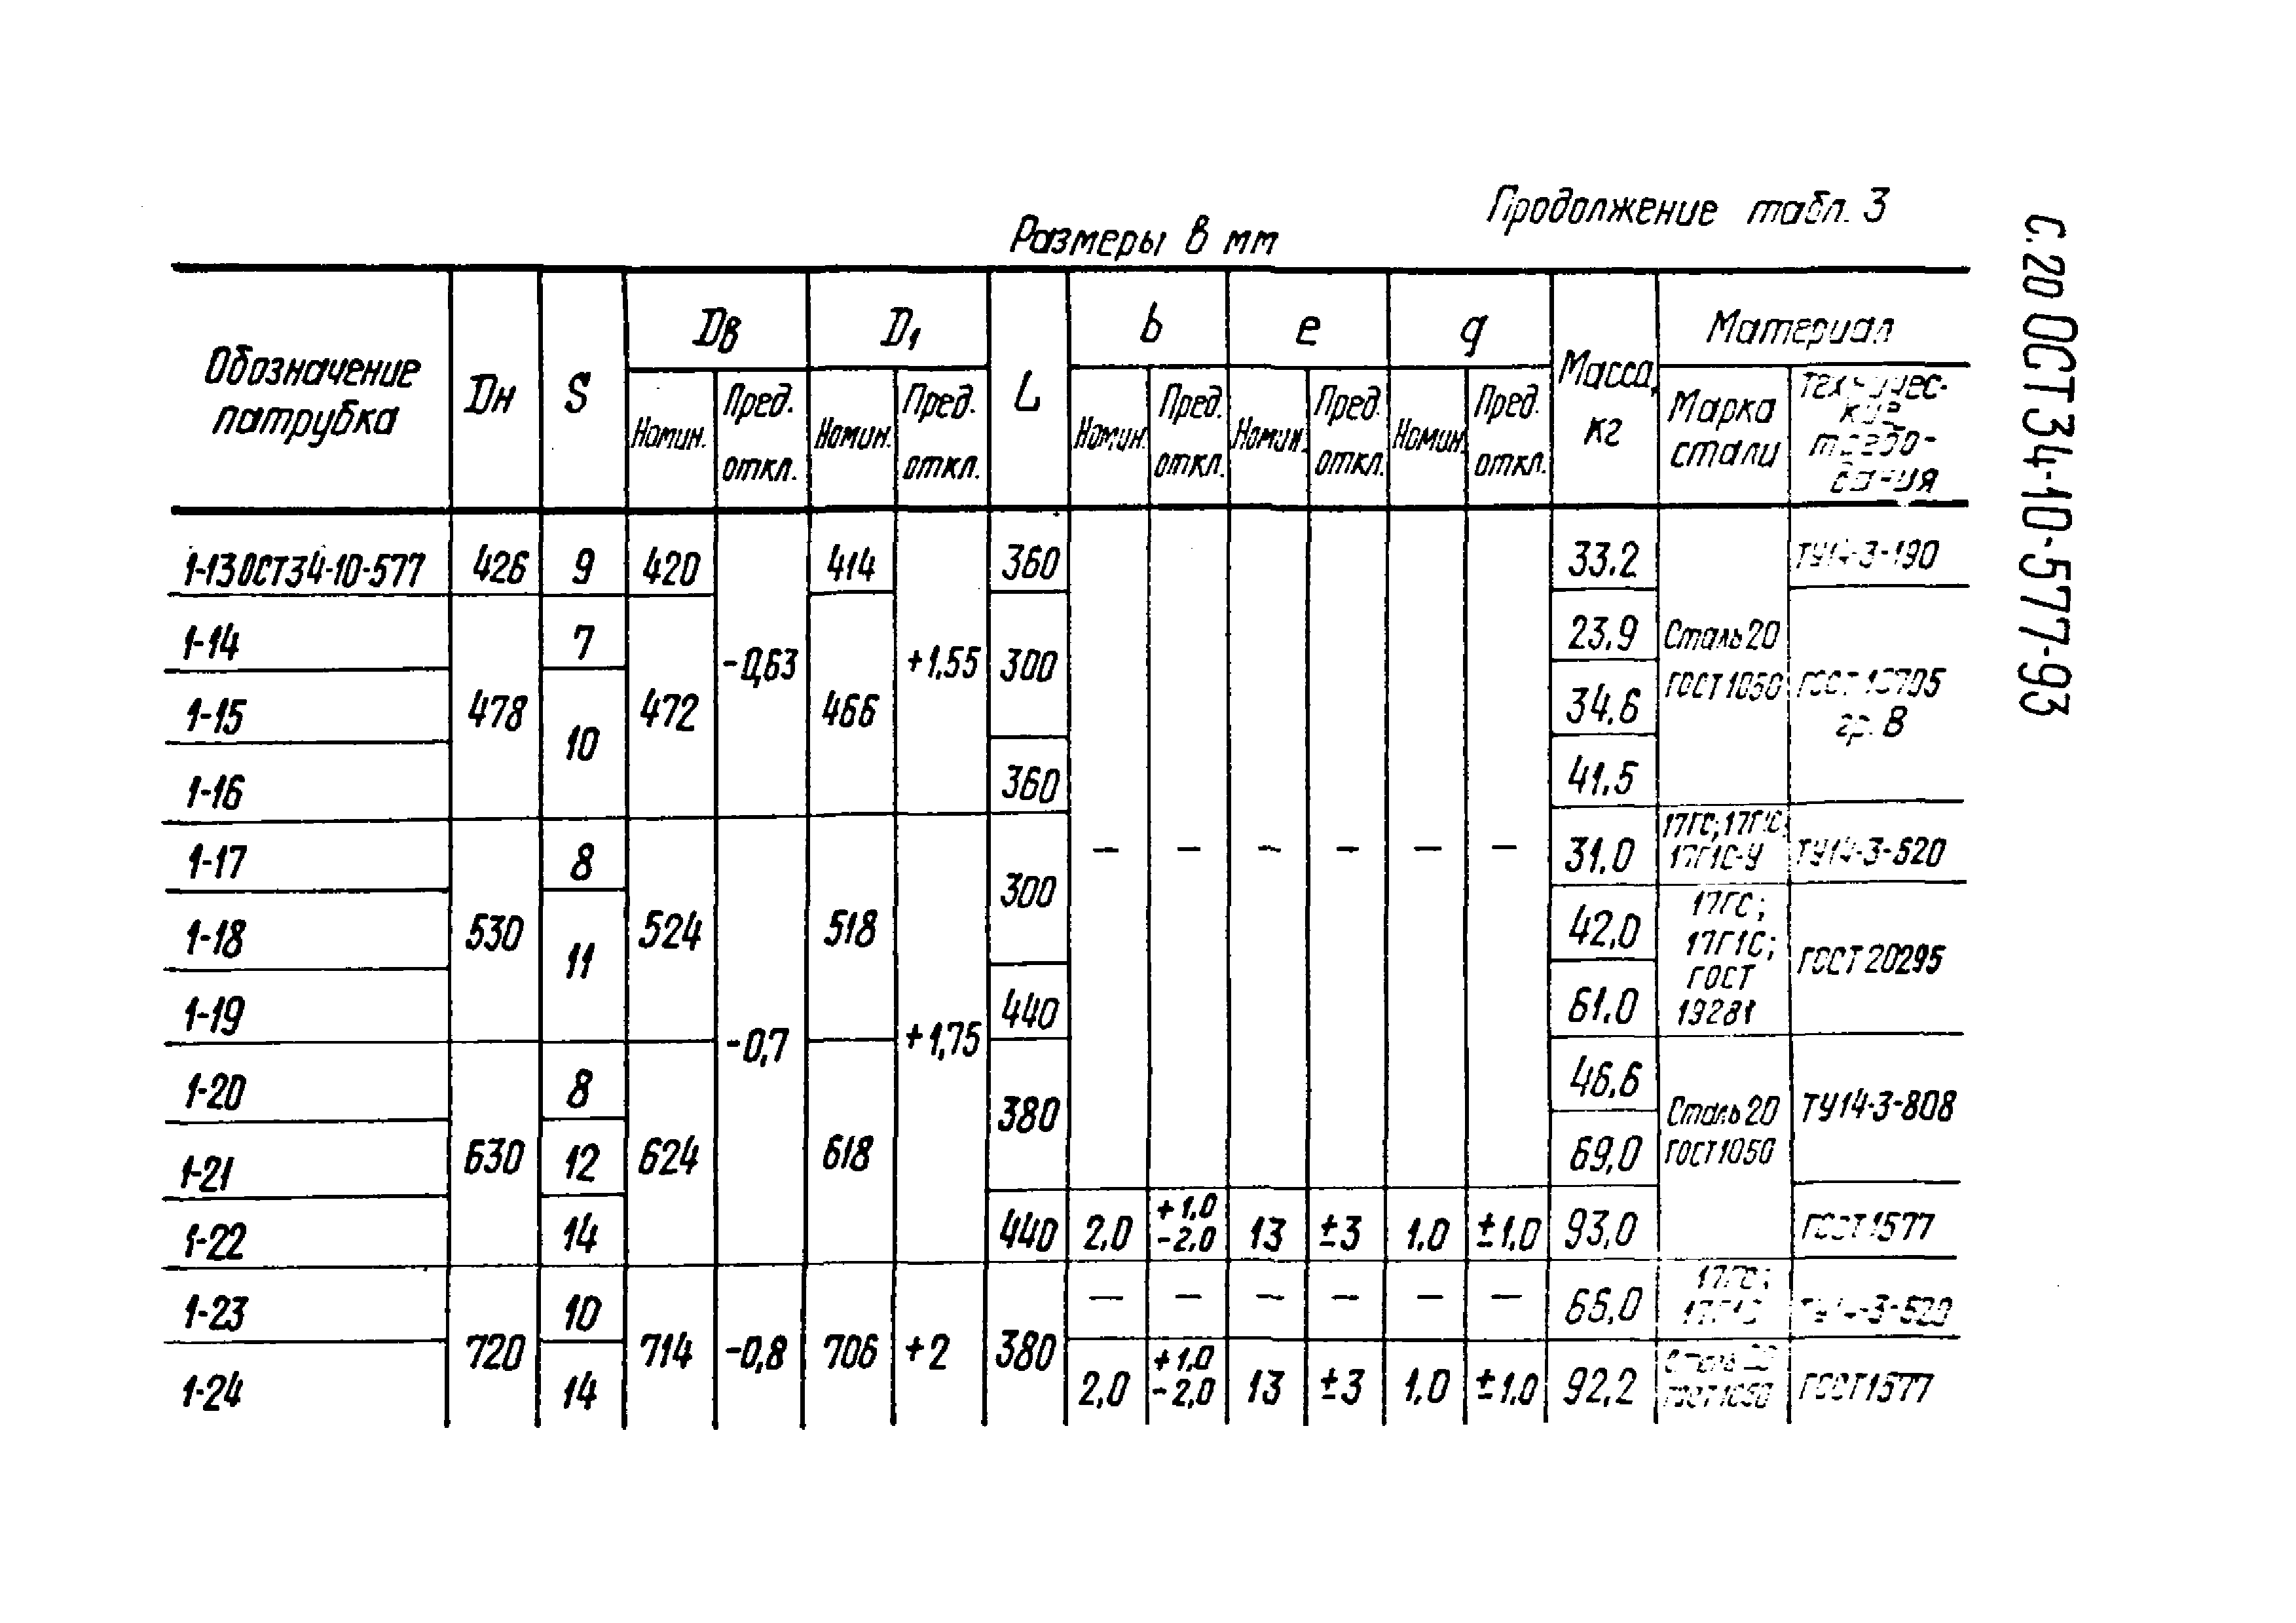 Продолжение табл. 3
Размеры в мм
с. 20 ОСТ 34-10-577-93
Обозначение патрубка Dн S Dв D1 L b e q Масса, кг Материал
Номин. Пред. откл. Номин. Пред. откл. Номин. Пред. откл. Номин. Пред. откл. Номин. Пред. откл. Марка стали Технические требования
1-13 ОСТ 34-10-577 426 9 420 -0,63 414 +1,55 360 - - - - - - 33.2 Сталь 20 ГОСТ 1050 ТУ14-3-190
1-14 478 7 472 466 300 23.9 гр. В
1-15 10 34.6
1-16 360 41,5
1-17 530 8 524 -0,7 518 +1,75 300 31.0 17ГС; 17Г1С; 17Г1С-У ТУ14-3-620
1-18 11 42,0 17ГС; 17Г1С; ГОСТ 19281 ГОСТ 20295
1-19 440 61.0
1-20 630 8 624 618 380 46,6 Сталь 20 ГОСТ 1050 ТУ14-3-808
1-21 12 69,0
1-22 14 440 2,0 +1,0 -2,0 13 ±3 1.0 ±1,0 93,0 ГОСТ 1577
1-23 720 10 714 -0,8 706 +2 380 - - - - - - 66,0 17ГС;
1-24 14 2,0 +1,0 -2,0 13 ±3 1.0 ±1.0 92,2 Сталь 20 ГОСТ 1050 ГОСТ 1577